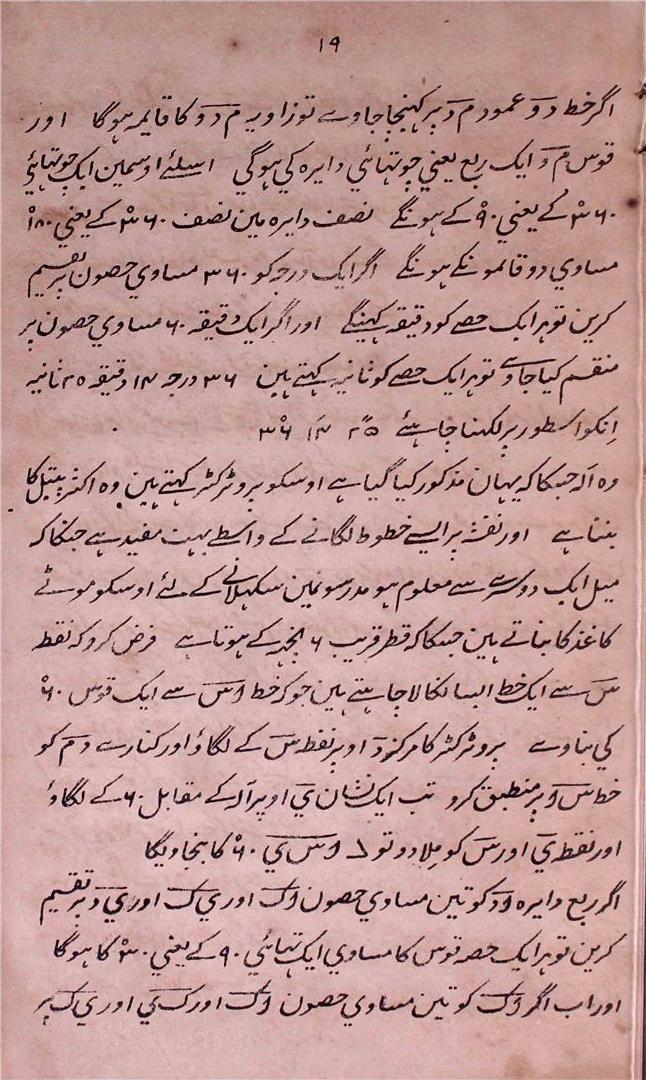 ۱۹
اگر خط د و عمود م د پر کہنچا جاوے تو زاویہ م د و کا قایمہ ہوگا اور
قوس م و ایک ربع یعنی چوتہائي دایرہ کي ہوگي اسلئے اوسمین ایک چوتہائي
۳۶۰ کے یعني ۹۰ کے ہونگے نصف دایرہ مین نصف ۳۶۰ کے یعني ۱۸۰
مساوي دو قائمونکے ہونگے اگر ایک درجہ کو ۳۶۰ مساوي حصون پر تقسیم
کرین تو ہر ایک حصے کو دقیقہ کہینگے اور اگر ایک دقیقہ ۶۰ مساوي حصون پر
منقسم کیا جاوے تو ہر ایک حصے کو ثانیہ کہتے ہین ۳۶ درجہ ۱۴ دقیقہ ۲۵ ثانیہ
اِنکو اسطور پر لکہنا چاہئے ۲۵ ۱۴ ۳۶
وہ آلہ جسکا کہ یہان مذکور کیا گیا ہے اوسکو پروٹرکٹر کہتے ہین وہ اکثر پیتل کا
بنتا ہے اور نقشہ پر ایسے خطوط لگانے کے واسطے بہت مفید ہے جنکا کہ
میل ایک دوسرے سے معلوم ہو مدرسونمین سکہلانے کے لئے اوسکو موٹے
کاغذ کا بناتے ہین جسکا کہ قطر قریب ۶ انچہہ کے ہوتا ہے فرض کرو کہ نقطہ
س سے ایک خط ایسا نکالا چاہتے ہین جو کہ خط ا س سے ایک قوس ۶۰
کي بناوے پروٹرکٹر کا مرکز د اوپر نقطہ س کے لگاؤ اور کنارے د م کو
خط س ا پر منطبق کرو تب ایک نشان ي اوپر آلہ کے مقابل ۶۰ کے لگاؤ
اور نقطہ ي اور س کو مِلا دو تو ا س ي ۶۰ کا بنجاویگا
اگر ربع دایرہ کو تین مساوي حصون اور اور پر تقسیم
کرین تو ہر ایک حصہ قوس کا مساوي ایک تہائي ۹۰ کے یعني ۳۰ کا ہوگا
اور اب اگر کو تین مساوي حصون اور اور پر